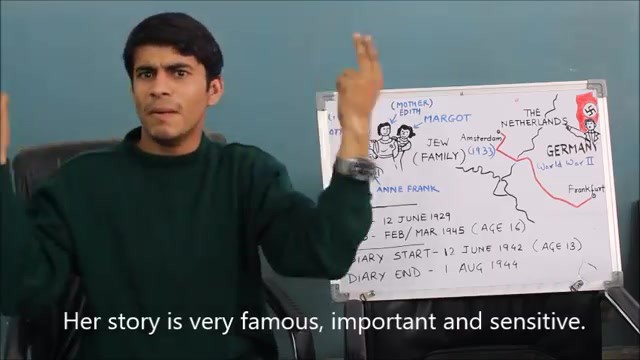 (MOTHER)
EDITH
MARGOT
JEW
(FAMILY)
ANNE FRANK
THE
NETHERLANDS
Amsterdam
(1933)
GERMANY
World War II
Frankfurt
12 JUNE 1929
FEB/MAR 1945 (AGE 16)
DIARY START - 12 JUNE 1942 (AGE 13)
DIARY END - 1 AUG 1944
Her story is very famous, important and sensitive.